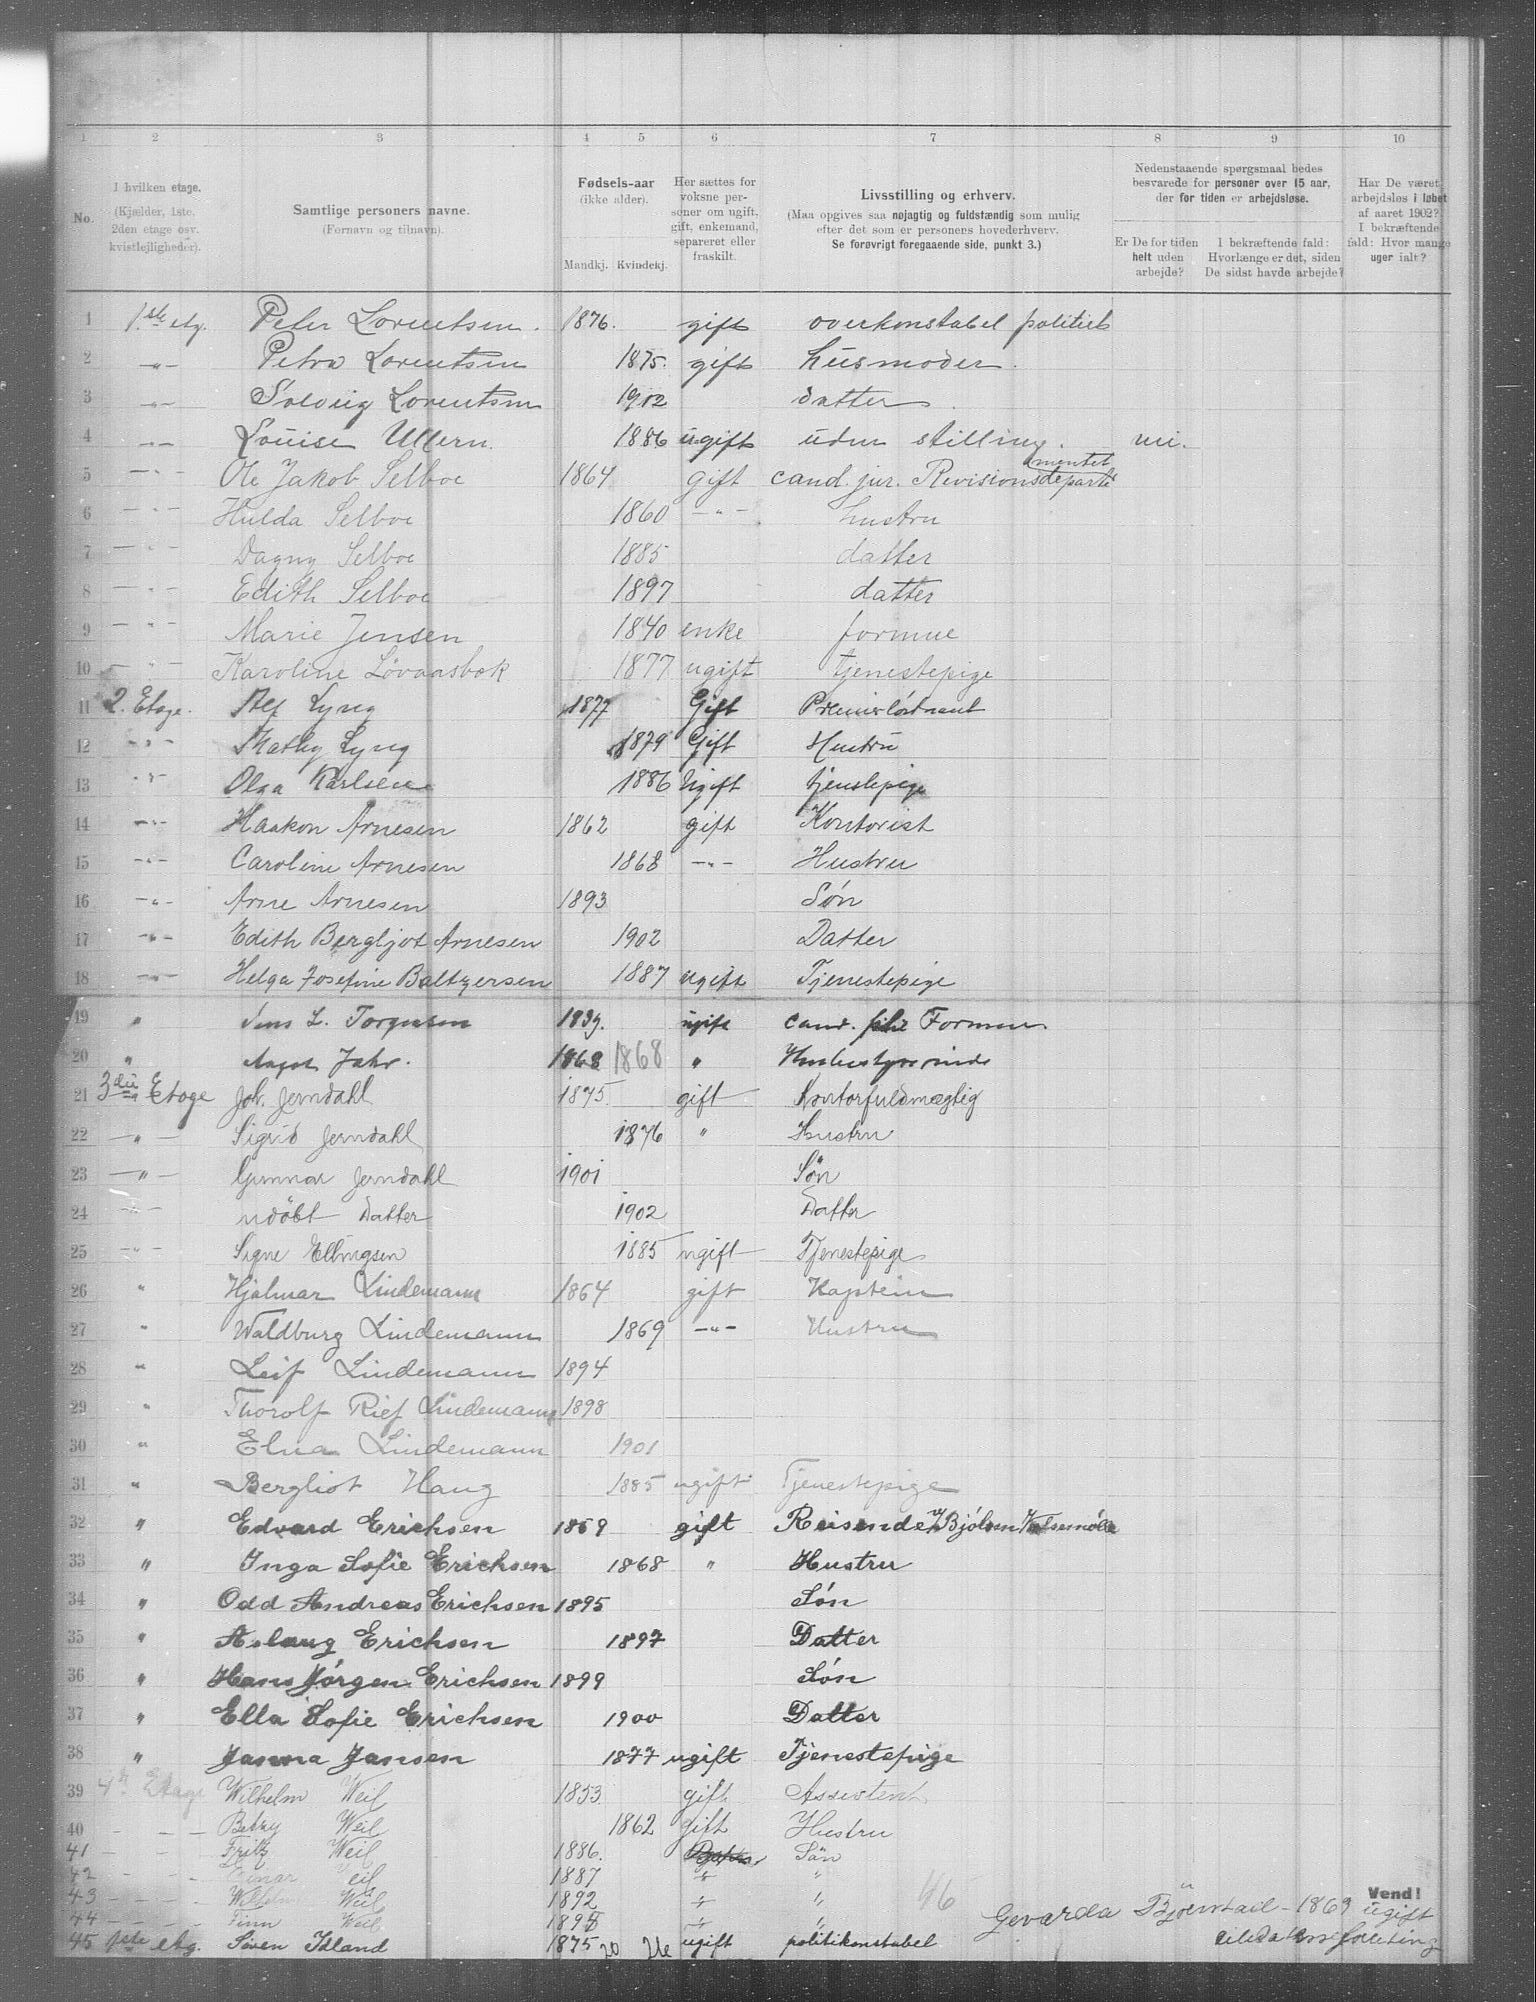 1 2 3 4 5 6 7 8 9 10
No.
I hvilken etage. (Kjælder, 1ste. 2den etage osv. kvistlejligheder).
Samtlige personers navne. (Fornavn og tilnavn).
Fødsels-aar (ikke alder). Mandkj. Kvindekj.
Her sættes for voksne personer om ugift, gift, enkemand, separeret eller fraskilt.
Livsstilling og erhverv. (Maa opgives saa nøjagtig og fuldstændig som mulig efter det som er personens hovederhverv. Se forøvrigt foregaaende side, punkt 3.)
Nedenstaaende spørgsmaal bedes besvarede for personer over 15 aar, der for tiden er arbejdsløse.
Er De for tiden helt uden arbejde?
I bekræftende fald: Hvorlænge er det, siden De sidst havde arbejde?
Har De været arbejdsløs i løbet af aaret 1902? I bekræftende fald: Hvor mange uger ialt?
1 1.ste etg. Peter Lorentsen. 1876. gift overkonstabel politiet
2 -"- Petra Lorentsen 1875. gift husmoder.
3 -"- Solveig Lorentsen 1902 datter.
4 -"- Louise Ullern. 1886 ugift uden stilling. ni.
5 -"- Ole Jakob Selboe 1864 gift cand. jur. Revisionsdepartementet
6 -"- Hulda Selboe 1860 -"- hustru
7 -"- Dagny Selboe 1885 datter
8 -"- Edith Selboe 1897 datter
9 -"- Marie Jensen 1840 enke formue
10 -"- Karoline Løvaasbak 1877 ugift tjenestepige
11 2. Etage. Alf Lyng 1877 Gift Premierløitnant
12 -"- Mathy Lyng 1879 Gift Hustru
13 -"- Olga Karlsen 1886 Ugift tjenstepige
14 -"- Haakon Arnesen 1862 gift Kontorist
15 -"- Caroline Arnesen 1868 -"- Hustru
16 -"- Arne Arnesen 1893 Søn
17 -"- Edith Bergljot Arnesen 1902 Datter
18 -"- Helga Josefine Baltzersen 1887 ugift Tjenestepige
19 " Jens L. Torgersen 1839. ugift cand. phil Formue
20 " Aagot Jahr. 1868 1868 "
21 3die Etage Joh. Jerndahl 1875. gift Kontorfuldmægtig
22 -"- Sigrid Jerndahl 1876 " Hustru
23 -"- Gunnar Jerndahl 1901 Søn
24 -"- udöbt Datter 1902 Datter
25 -"- Signe Ellingsen 1885 ugift Tjenestepige
26 " Hjalmar Lindemann 1864 gift Kaptein
27 " Waldburg Lindemann 1869 -"- Hustru
28 " Leif Lindemann 1894
29 " Thorolf Rief Lindemann 1898
30 " Elna Lindemann 1901
31 " Bergliot Haug 1885 ugift Tjenestepige
32 " Edvard Erichsen 1859 gift Reisende
33 " Inga Sofie Erichsen 1868 " Hustru
34 " Odd Andreas Erichsen 1895 Søn
35 " Aslaug Erichsen 1897 Datter
36 " Hans Jørgen Erichsen 1899 Søn
37 " Ella Sofie Erichsen 1900 Datter
38 " Janna Jansen 1877 ugift Tjenestepige
39 4de Etage Wilhelm Weil 1853 gift Assistent
40 - - - Betzy Weil 1862 gift Hustru
41 - - - Fritz Weil 1886. Søn
42 - - - Weil 1887 " "
43 - - - Wilhelm Weil 1892 " "
44 - - - Finn Weil " "
45 1ste etg. Søren Idland 1875 ugift politikonstabel
20 26
46 Gevarda 1869 ugift
Vend!